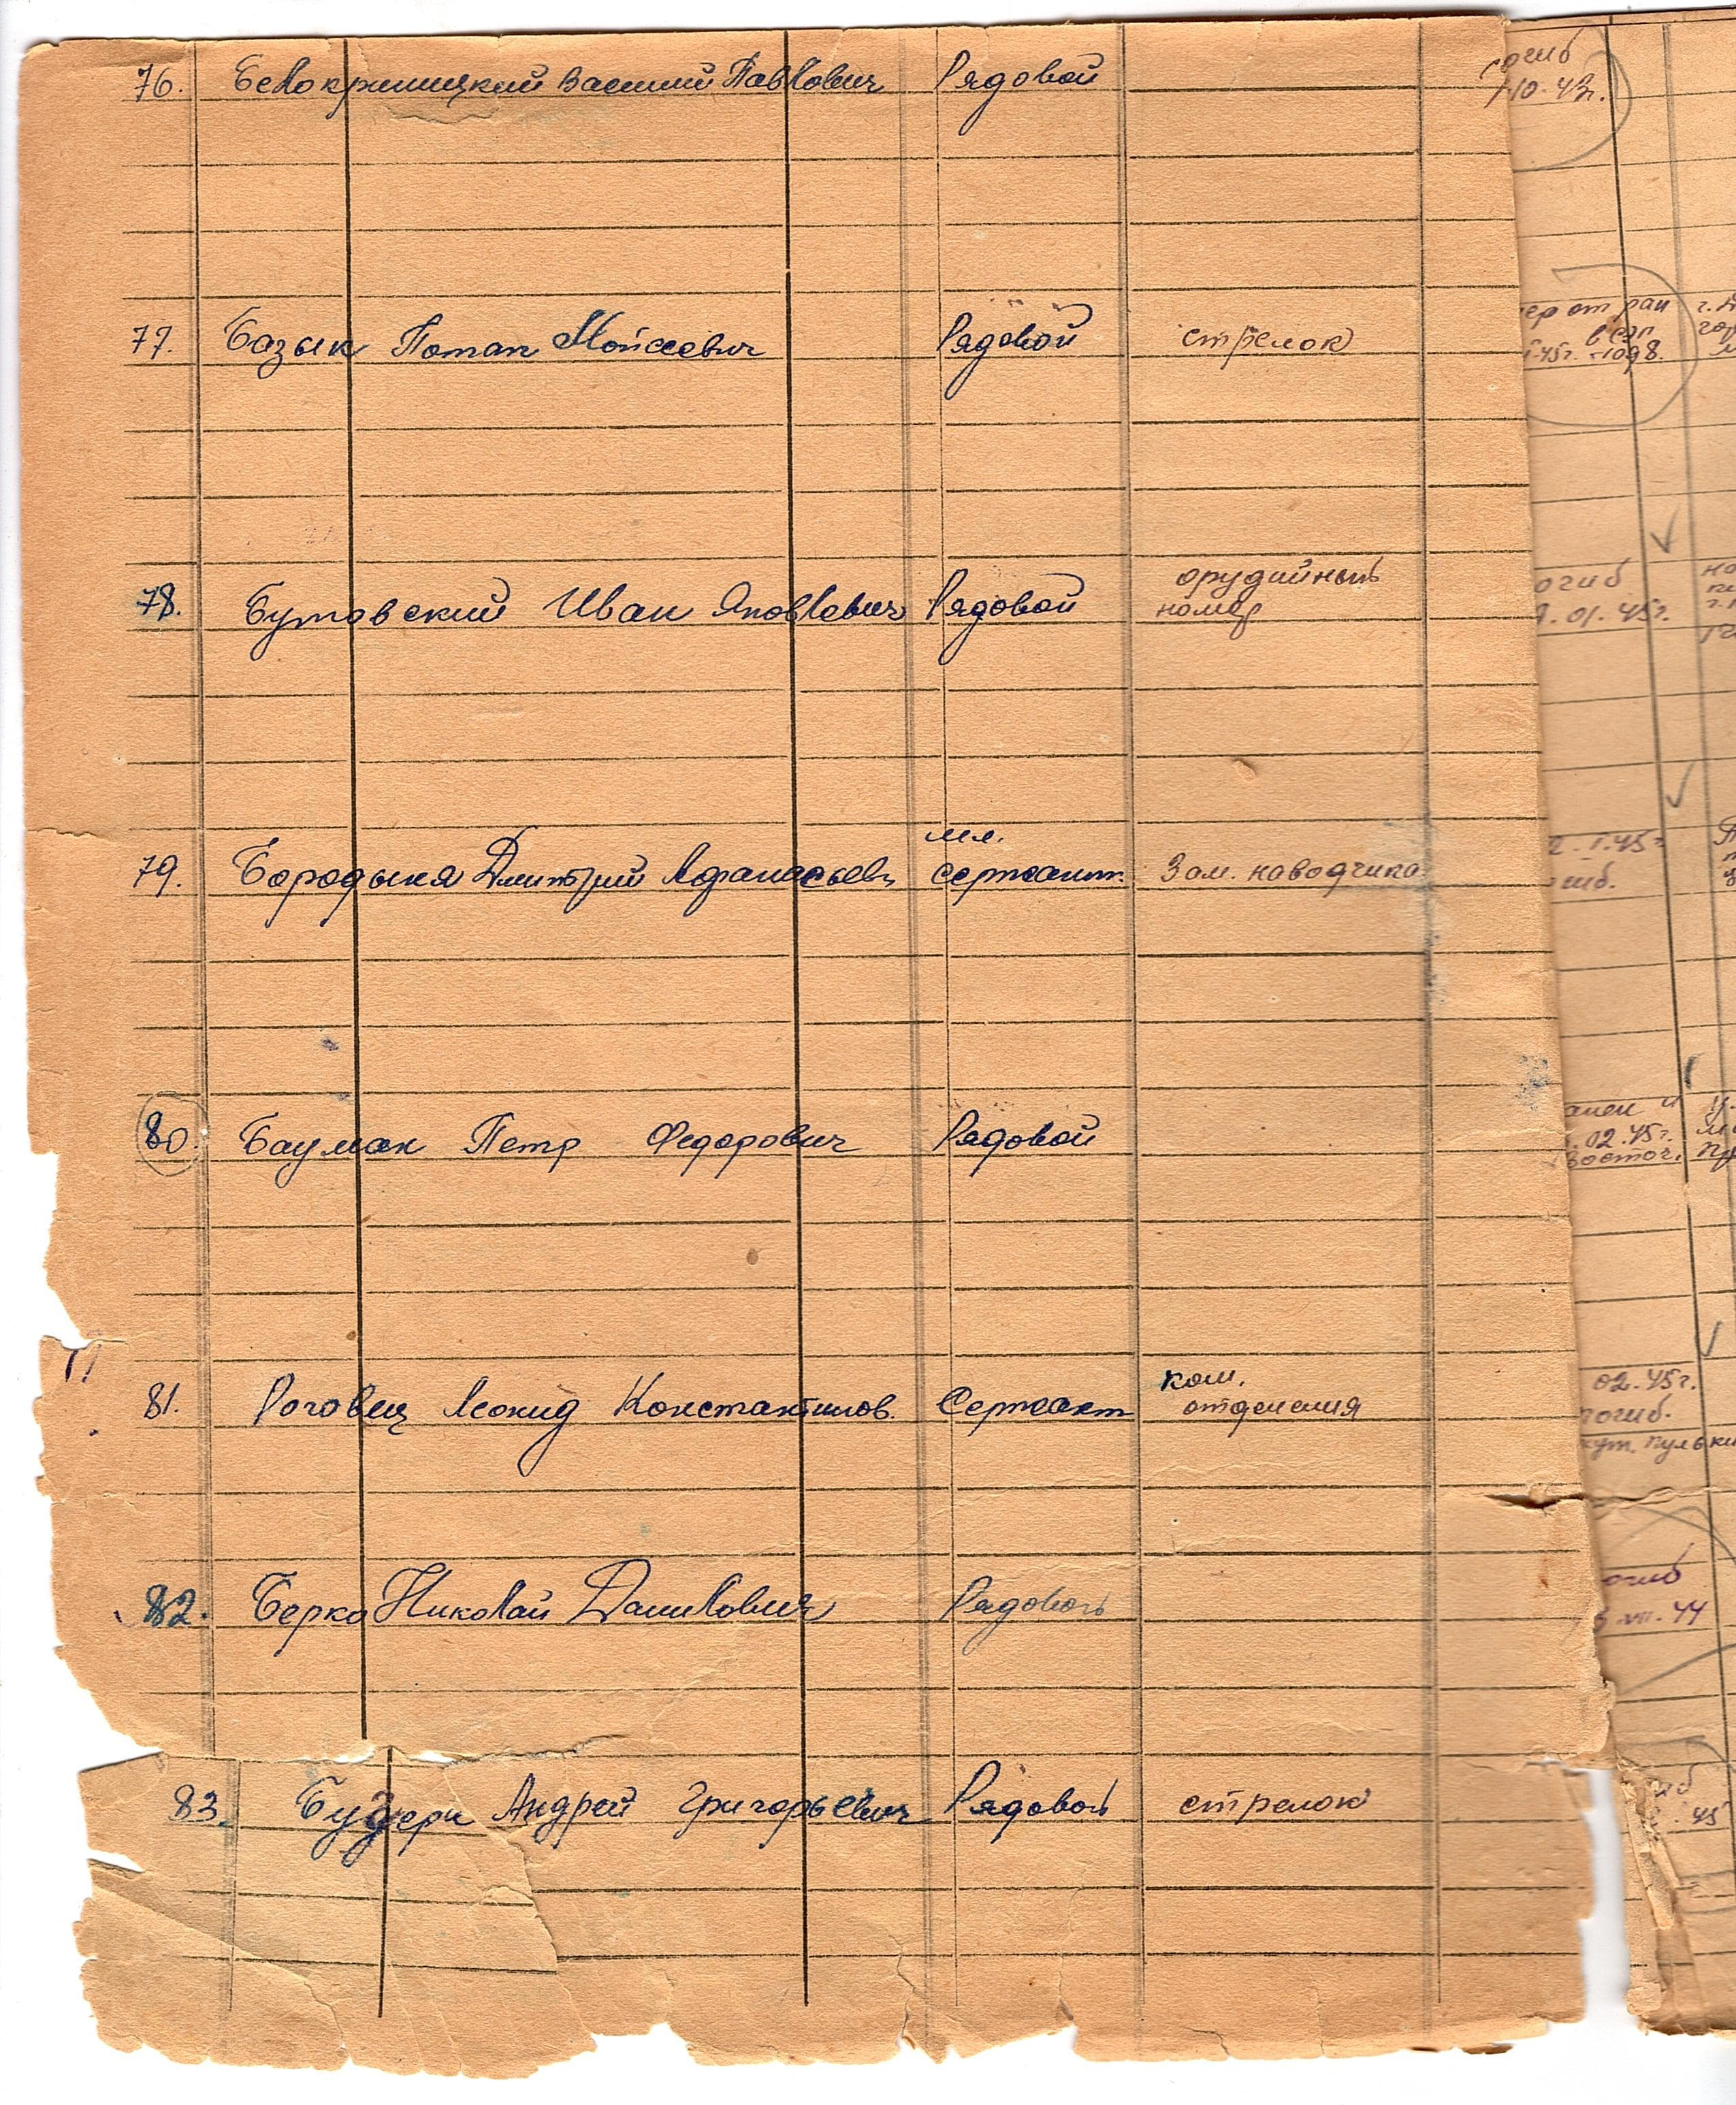 76. Белокриницкий Василий Павлович Рядовой
погиб
10-43г.
77. Базык Потап Мойсеевич Рядовой стрелок
умер от ран
в сэп
45г. -1098.
78. Бутовский Иван Яковлевич Рядовой орудийный
номер
погиб
.01.45г.
79. Бородыня Дмитрий Афанасьев. мл.
сержант. Зам. наводчика
2.1.45г
погиб.
80. Бауман Петр Федорович Рядовой
.02.45г.
Восточ.
81. Роговец Леонид Константинов. Сержант ком.
отделения
02.45г.
погиб.
хут. пульки
82. Берко Николай Данилович Рядовой
погиб
VII.44
83. Будери Андрей Григорьевич Рядовой стрелок
45